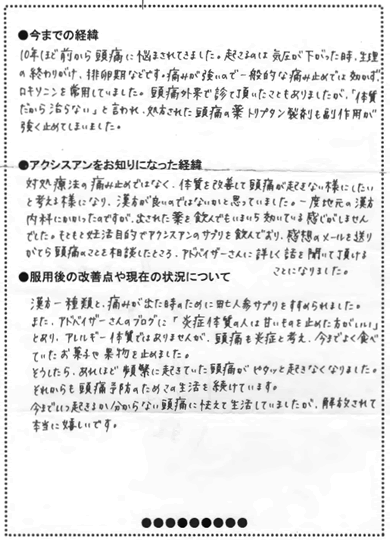 ●今までの経緯
10年ほど前から頭痛に悩まされてきました。起こるのは気圧が下がった時、生理
の終わりがけ、排卵期などです。痛みが強いので一般的な痛み止めでは効かず
ロキソニンを常用していました。頭痛外来で診て頂いたこともありましたが、「体質
だから治らない」と言われ、処方された頭痛の薬トリプタン製剤も副作用が
強く止めてしまいました。
●アクシスアンをお知りになった経緯
対処療法の痛み止めではなく、体質を改善して頭痛が起きない様にしたい
と考える様になり、漢方が良いのではないかと思っていました。一度地元の漢方
内科にかかったのですが、出された薬を飲んでもいまいち効いている感じがしませ
んでした。もともと妊活目的でアクシスアンのサプリを飲んでおり、感想のメールを送り
がてら頭痛のことを相談したところ、アドバイザーさんに詳しく話を聞いて頂ける
ことになりました。
●服用後の改善点や現在の状況について
漢方一種類と、痛みが出た時のために田七人参サプリをすすめられました。
また、アドバイザーさんのブログに「炎症体質の人は甘いものを止めた方がいい」
とあり、アレルギー体質ではありませんが、頭痛も炎症と考え、今までよく食べ
ていたお菓子や果物を止めました。
そうしたら、あれほど頻繁に起きていた頭痛がピタッと起きなくなりました。
それからも頭痛予防のためこの生活を続けています。
今までいつ起きるか分からない頭痛に怯えて生活していましたが、解放されて
本当に嬉しいです。